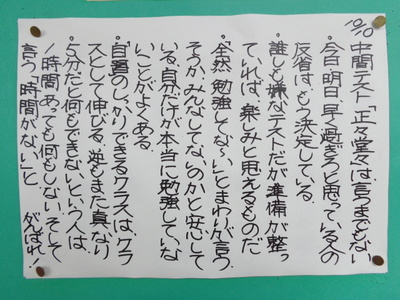 10/10
中間テスト「正々堂々は言うまでもない
・今日、明日、早く過ぎろと思っている人の
反省は、もう決定している。
・誰しも嫌なテストだが準備が整っ
ていれば、楽しみと思えるものだ
・「全然勉強してな〜い」とまわりが言う。
そうか、みんなしてないのかと安心して
いる、自分だけが本当に勉強していな
いことがよくある。
・自習のしっかりできるクラスは、クラ
スとして伸びる。逆もまた真なり
・5分だと何もできないという人は
1時間あっても何もしない。そして
言う「時間がない」と がんばれ!